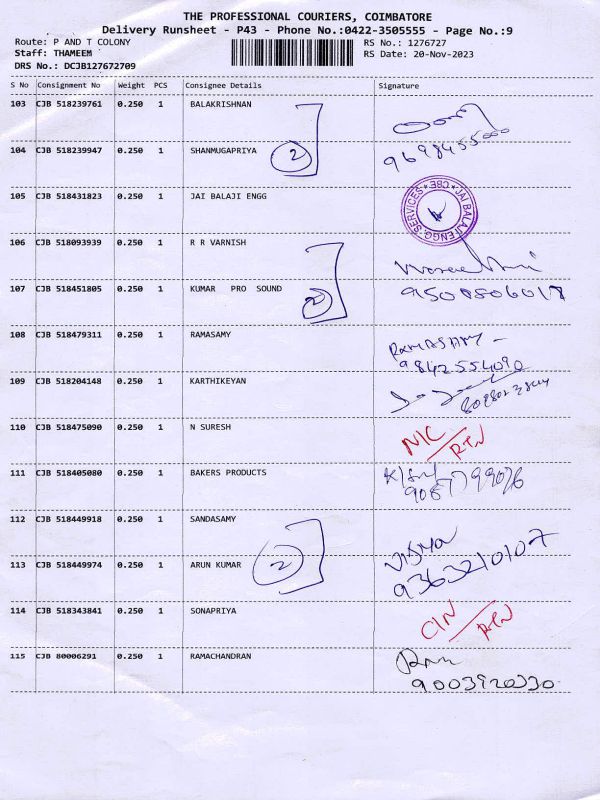 THE PROFESSIONAL COURIERS, COIMBATORE
Delivery Runsheet - P43 - Phone No.:0422-3505555 - Page No.:9
Route: P AND T COLONY
Staff: THAMEEM
DRS No.: DCJB127672709
RS No.: 1276727
RS Date: 20-Nov-2023
S No Consignment No Weight PCS Consignee Details Signature
103 CJB 518239761 0.250 1 BALAKRISHNAN
104 CJB 518239947 0.250 1 SHANMUGAPRIYA 2 9698455000
105 CJB 518431823 0.250 1 JAI BALAJI ENGG
JAI BALAJI ENGG SERVICES ★ CBE ★
106 CJB 518093939 0.250 1 R R VARNISH
107 CJB 518451805 0.250 1 KUMAR PRO SOUND 2 9500806018
108 CJB 518479311 0.250 1 RAMASAMY RAMASAMY
9842554090
109 CJB 518204148 0.250 1 KARTHIKEYAN
110 CJB 518475090 0.250 1 N SURESH N/C / RTN
111 CJB 518405080 0.250 1 BAKERS PRODUCTS
112 CJB 518449918 0.250 1 SANDASAMY
113 CJB 518449974 0.250 1 ARUN KUMAR 2 9363210107
114 CJB 518343841 0.250 1 SONAPRIYA C/N / RTN
115 CJB 80006291 0.250 1 RAMACHANDRAN
9003920330